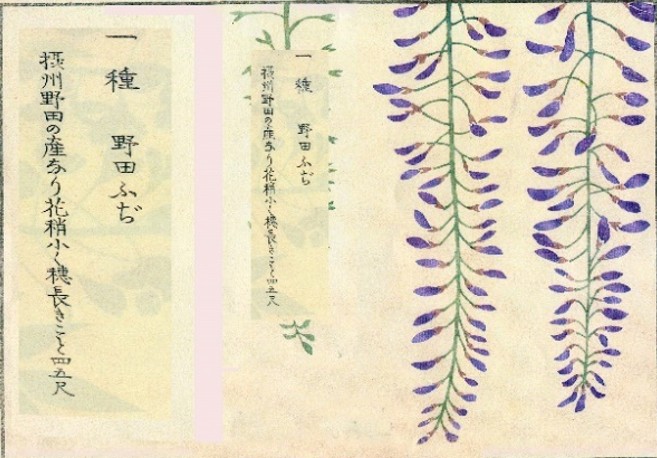 一種 野田ふぢ
摂州野田の産なり花稍小く穂長きこと四五尺
一種 野田ふぢ
摂州野田の産なり花稍小く穂長きこと四五尺